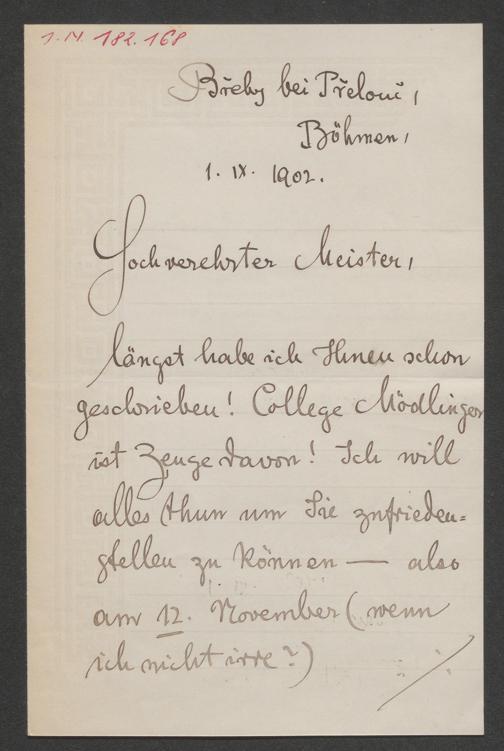 I.N. 182.168
Břehy bei Přelouč,
Böhmen,
1. IX. 1902.
Hochverehrter Meister,
längst habe ich Ihnen schon
geschrieben! College Mödlinger
ist Zeuge davon! Ich will
alles thun um Sie zufrieden=
stellen zu können — also
am 12. November (wenn
ich nicht irre?)
./.